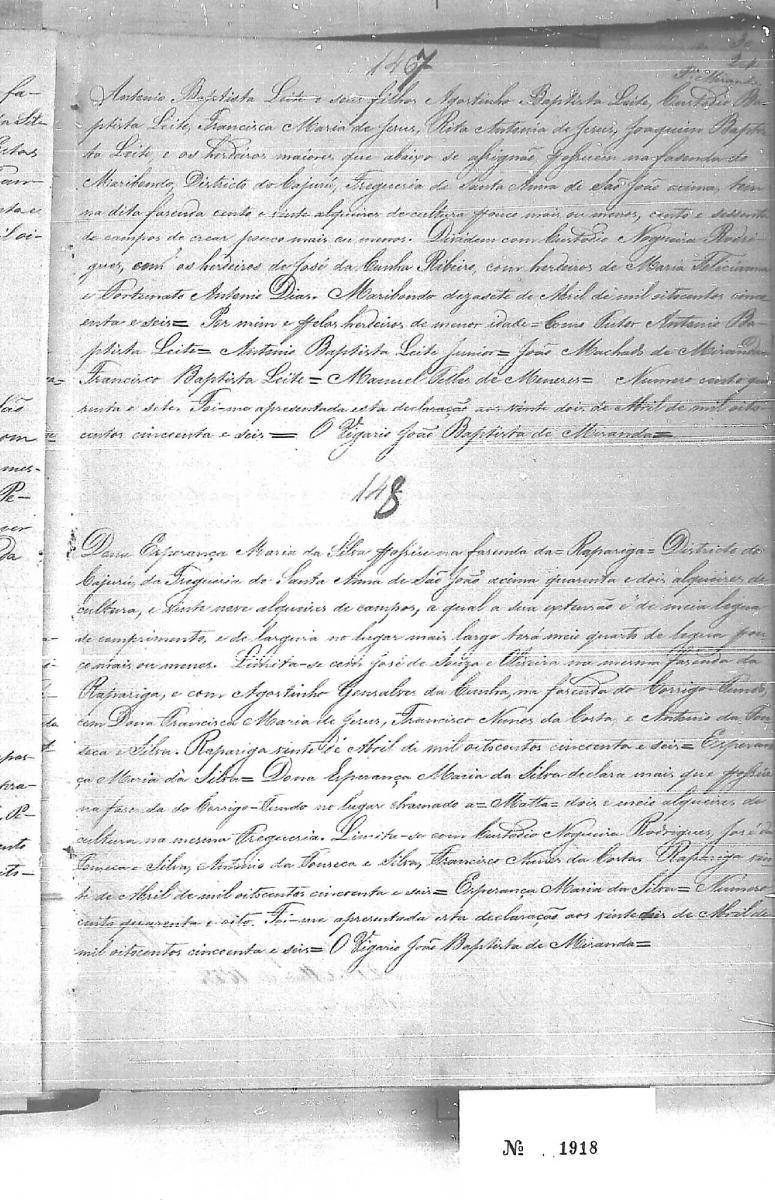 147
Antonio Baptista Leite e seus filhos Agostinho Baptista Leite, Custodio Ba-
ptista Leite, Francisca Maria de Jesus, Rita Antonia de Jesus, Joaquim Baptis-
ta Leite, e os herdeiros maiores, que abaixo se assignão, possuem na fazenda do
Maribondo, Districto do Cajurú, Freguesia de Santa Anna de São João acima, tem
na dita fazenda cento e vinte alqueires de cultura pouco mais ou menos, cento e sessenta
de campos de crear pouco mais ou menos. Dividem com Custodio Nogueira Rodri-
gues, com os herdeiros de José da Cunha Ribeiro, com herdeiros de Maria Feliciana
e Fortunato Antonio Dias. Maribondo dezasete de Abril de mil oitocentos cinco-
enta e seis = Per mim e pelos herdeiros de menor idade = Como Tutor Antonio Ba-
ptista Leite = Antonio Baptista Leite Junior = João Machado de Miranda =
Francisco Baptista Leite = Manuel Telles de Meneses = Numero cento qua-
renta e sete. Foi-me apresentada esta declaração aos vinte dois de Abril de mil oito-
centos cincoenta e seis = O Vigario João Baptista de Miranda =
148
Dona Esperança Maria da Silva possúe na fazenda da = Rapariga = Districto do
Cajurú, da Freguesia de Santa Anna de São João acima quarenta e dois alqueires de
cultura, e vinte nove alqueires de campos, a qual a sua extensão é de meia legua
de comprimento, e de largura no lugar mais largo terá meio quarto de legua pou-
co mais ou menos. Limita-se com José de Souza e Oliveira na mesma fazenda da
Rapariga, e com Agostinho Gonsalves da Cunha, na fazenda do Corrigo-Fundo,
com Dona Francisca Maria de Jesus, Francisco Nunes da Costa, e Antonio da Fon-
seca e Silva. Rapariga vinte de Abril de mil oitocentos cincoenta e seis = Esperan-
ça Maria da Silva = Dona Esperança Maria da Silva declara mais que possúe
na fasenda do Corrigo-Fundo no lugar chamado a = Matta = dois e meio alqueires de
cultura na mesma Freguesia. Limita-se com Custodio Nogueira Rodrigues, José da
Fonseca e Silva, Antonio da Fonseca e Silva, Francisco Nunes da Costa. Rapariga vin-
te de Abril de mil oitocentos cincoenta e seis = Esperança Maria da Silva = Numero
cento quarenta e oito. Foi-me apresentada esta declaração aos vinte dois de Abril de
mil oitocentos cincoenta e seis = O Vigario João Baptista de Miranda =
№ 1918